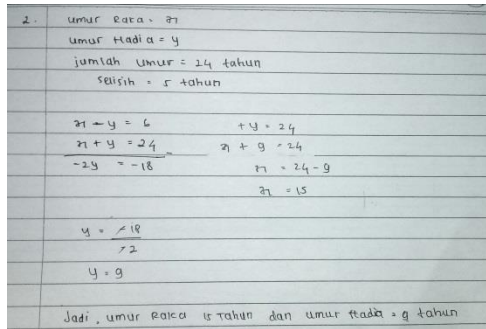 2. umur Raka = x
umur Hadia = y
jumlah umur = 24 tahun
selisih = 5 tahun
x - y = 6
x + y = 24 -
-2y = -18
y = -18
-2
y = 9
+ y = 24
x + 9 = 24
x = 24 - 9
x = 15
Jadi, umur Raka 15 Tahun dan umur Hadia = 9 tahun